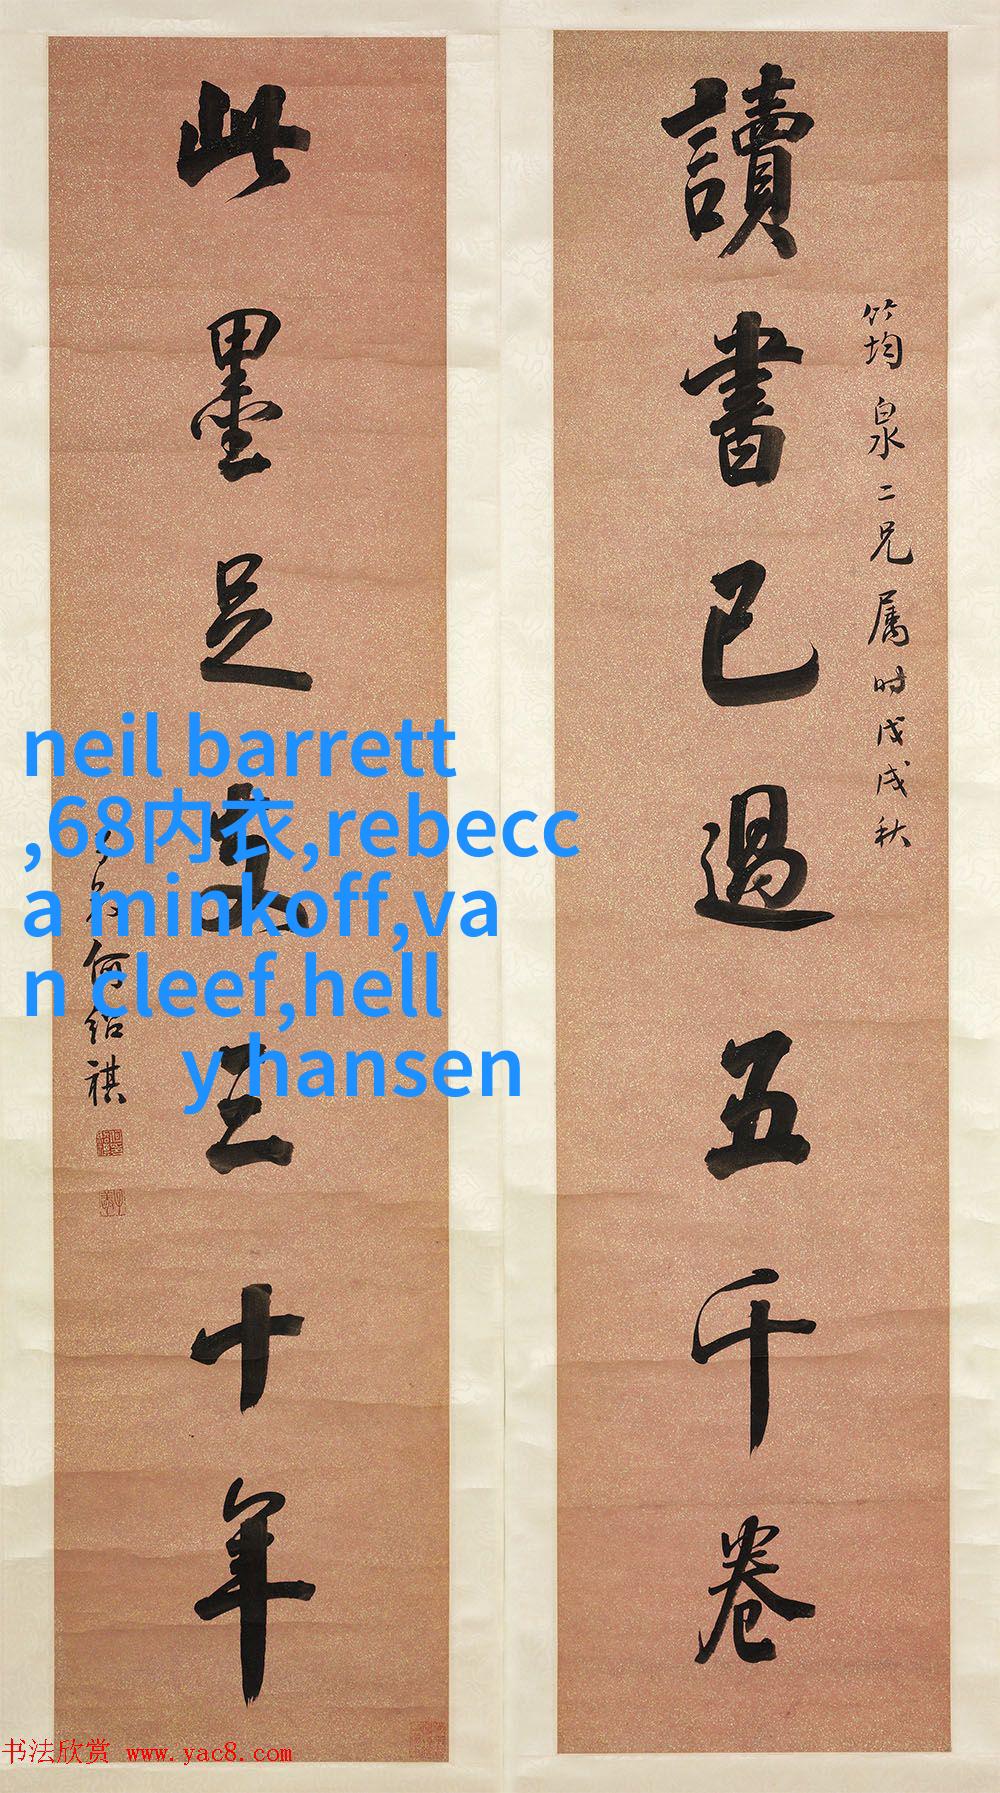 筠泉二兄属时戊戌秋
讀書已過五千卷
此墨足支三十年
何绍祺
neil barrett
,68内衣,rebecc
a minkoff,va
n cleef,hell
y hansen
书法欣赏 www.yac8.com